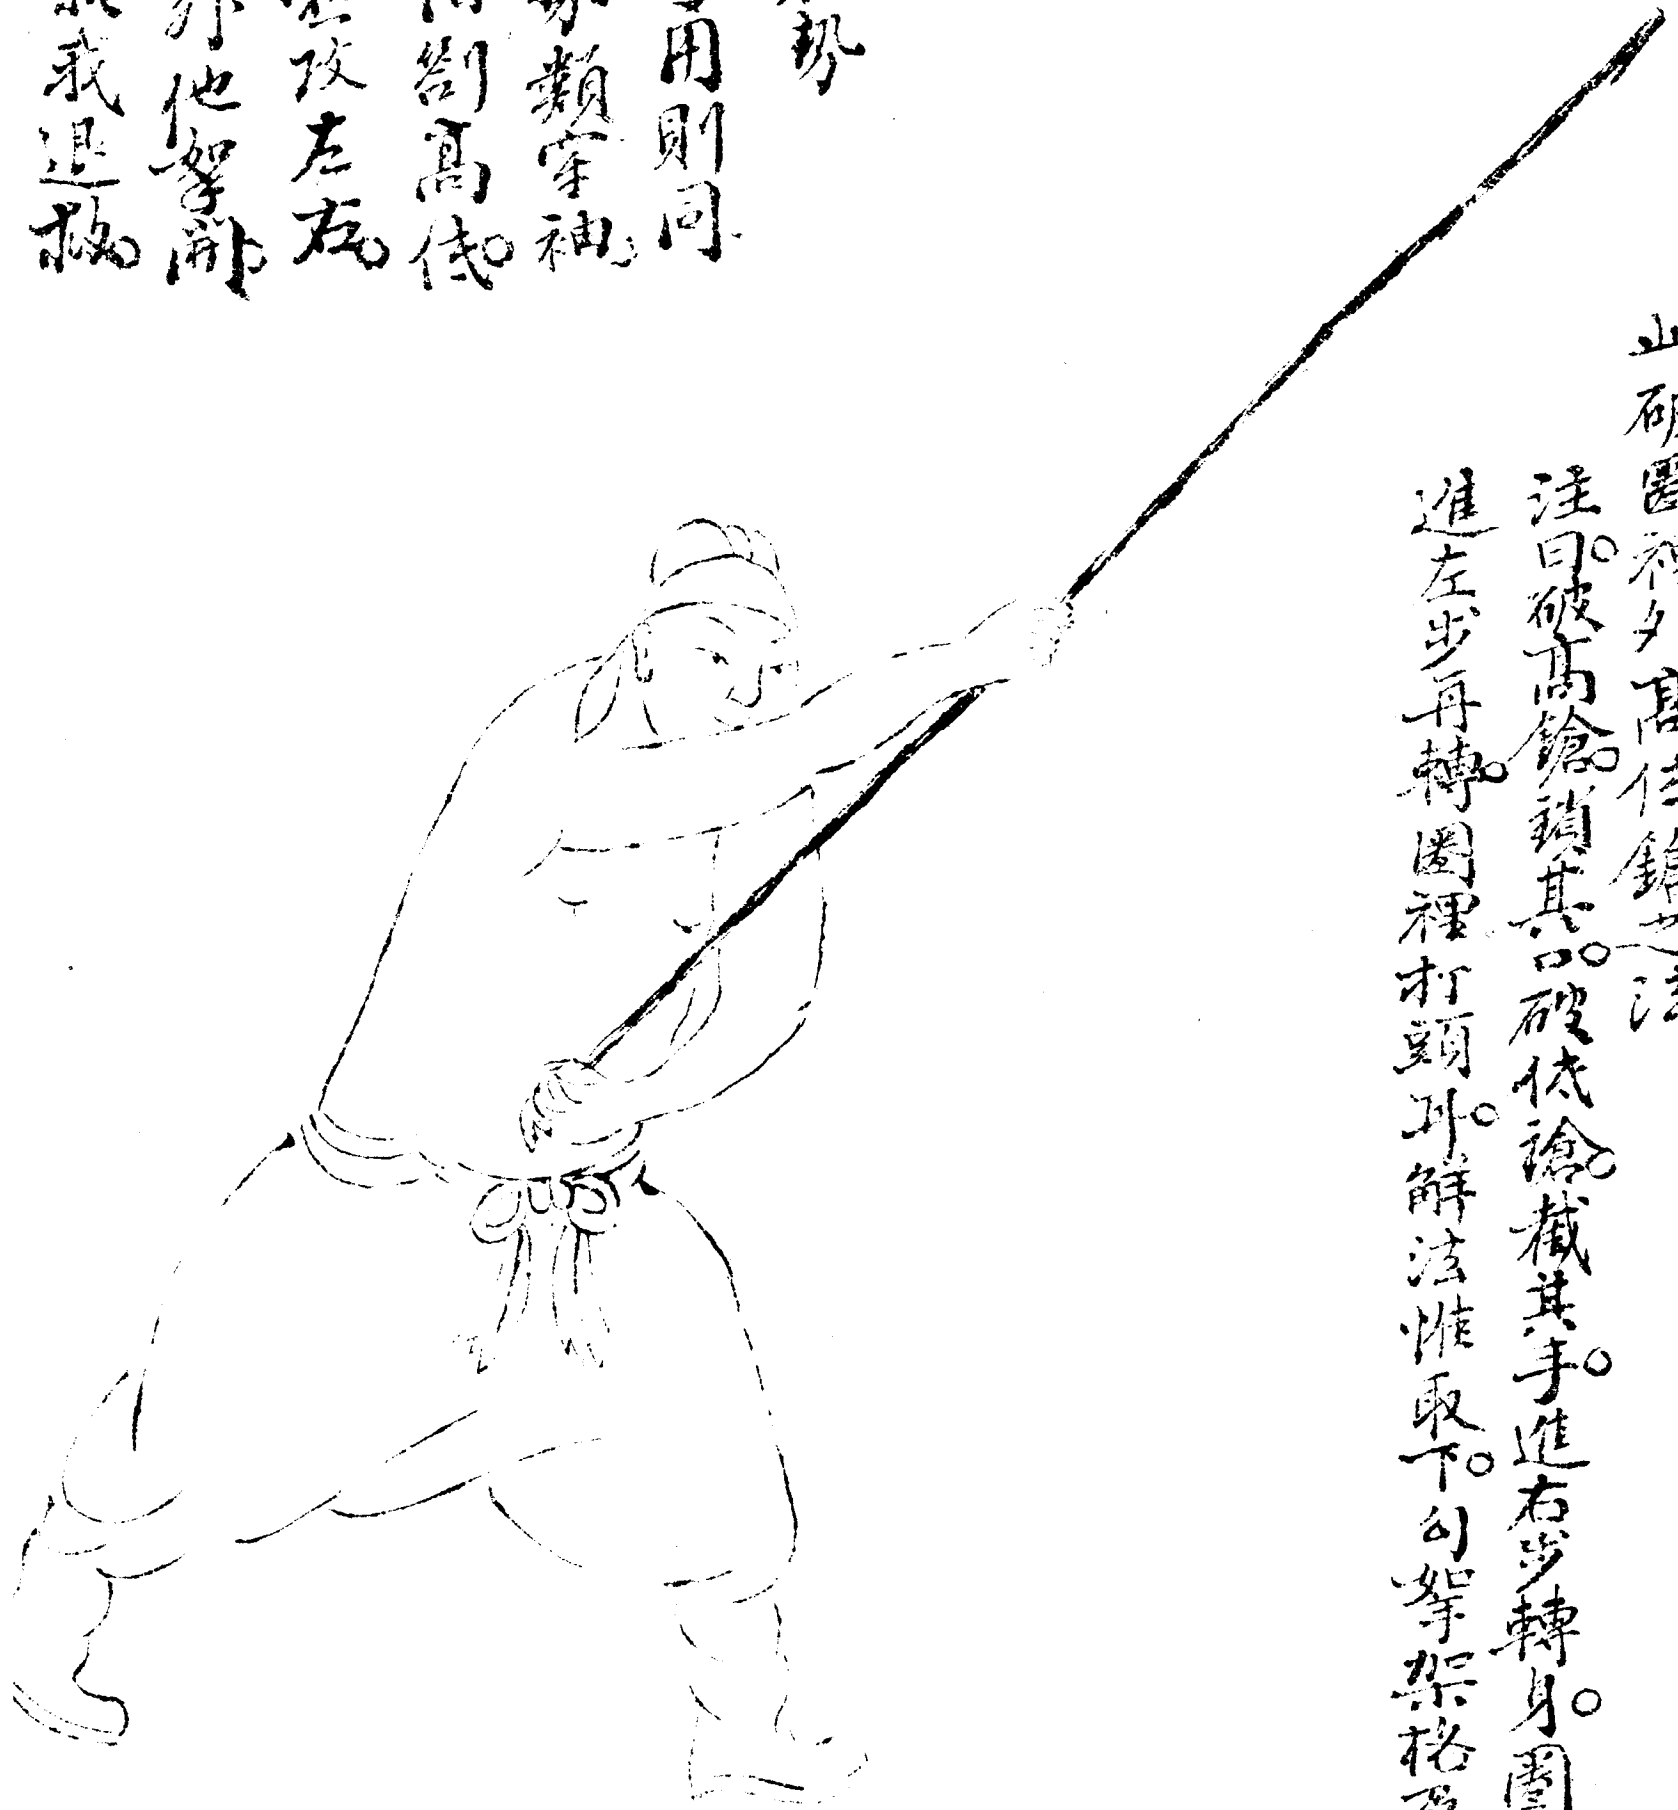 山破圈裡夕高低鎗之法
注曰。破高鎗。鎖其口。破低鎗。截其手。進右步轉身。圈
進左步再轉。圈裡打頭耳。解法惟取下。勾拏架格
勢
用則同
類穿袖。
劄高低。
攻左右。
他拏開。
我退救。